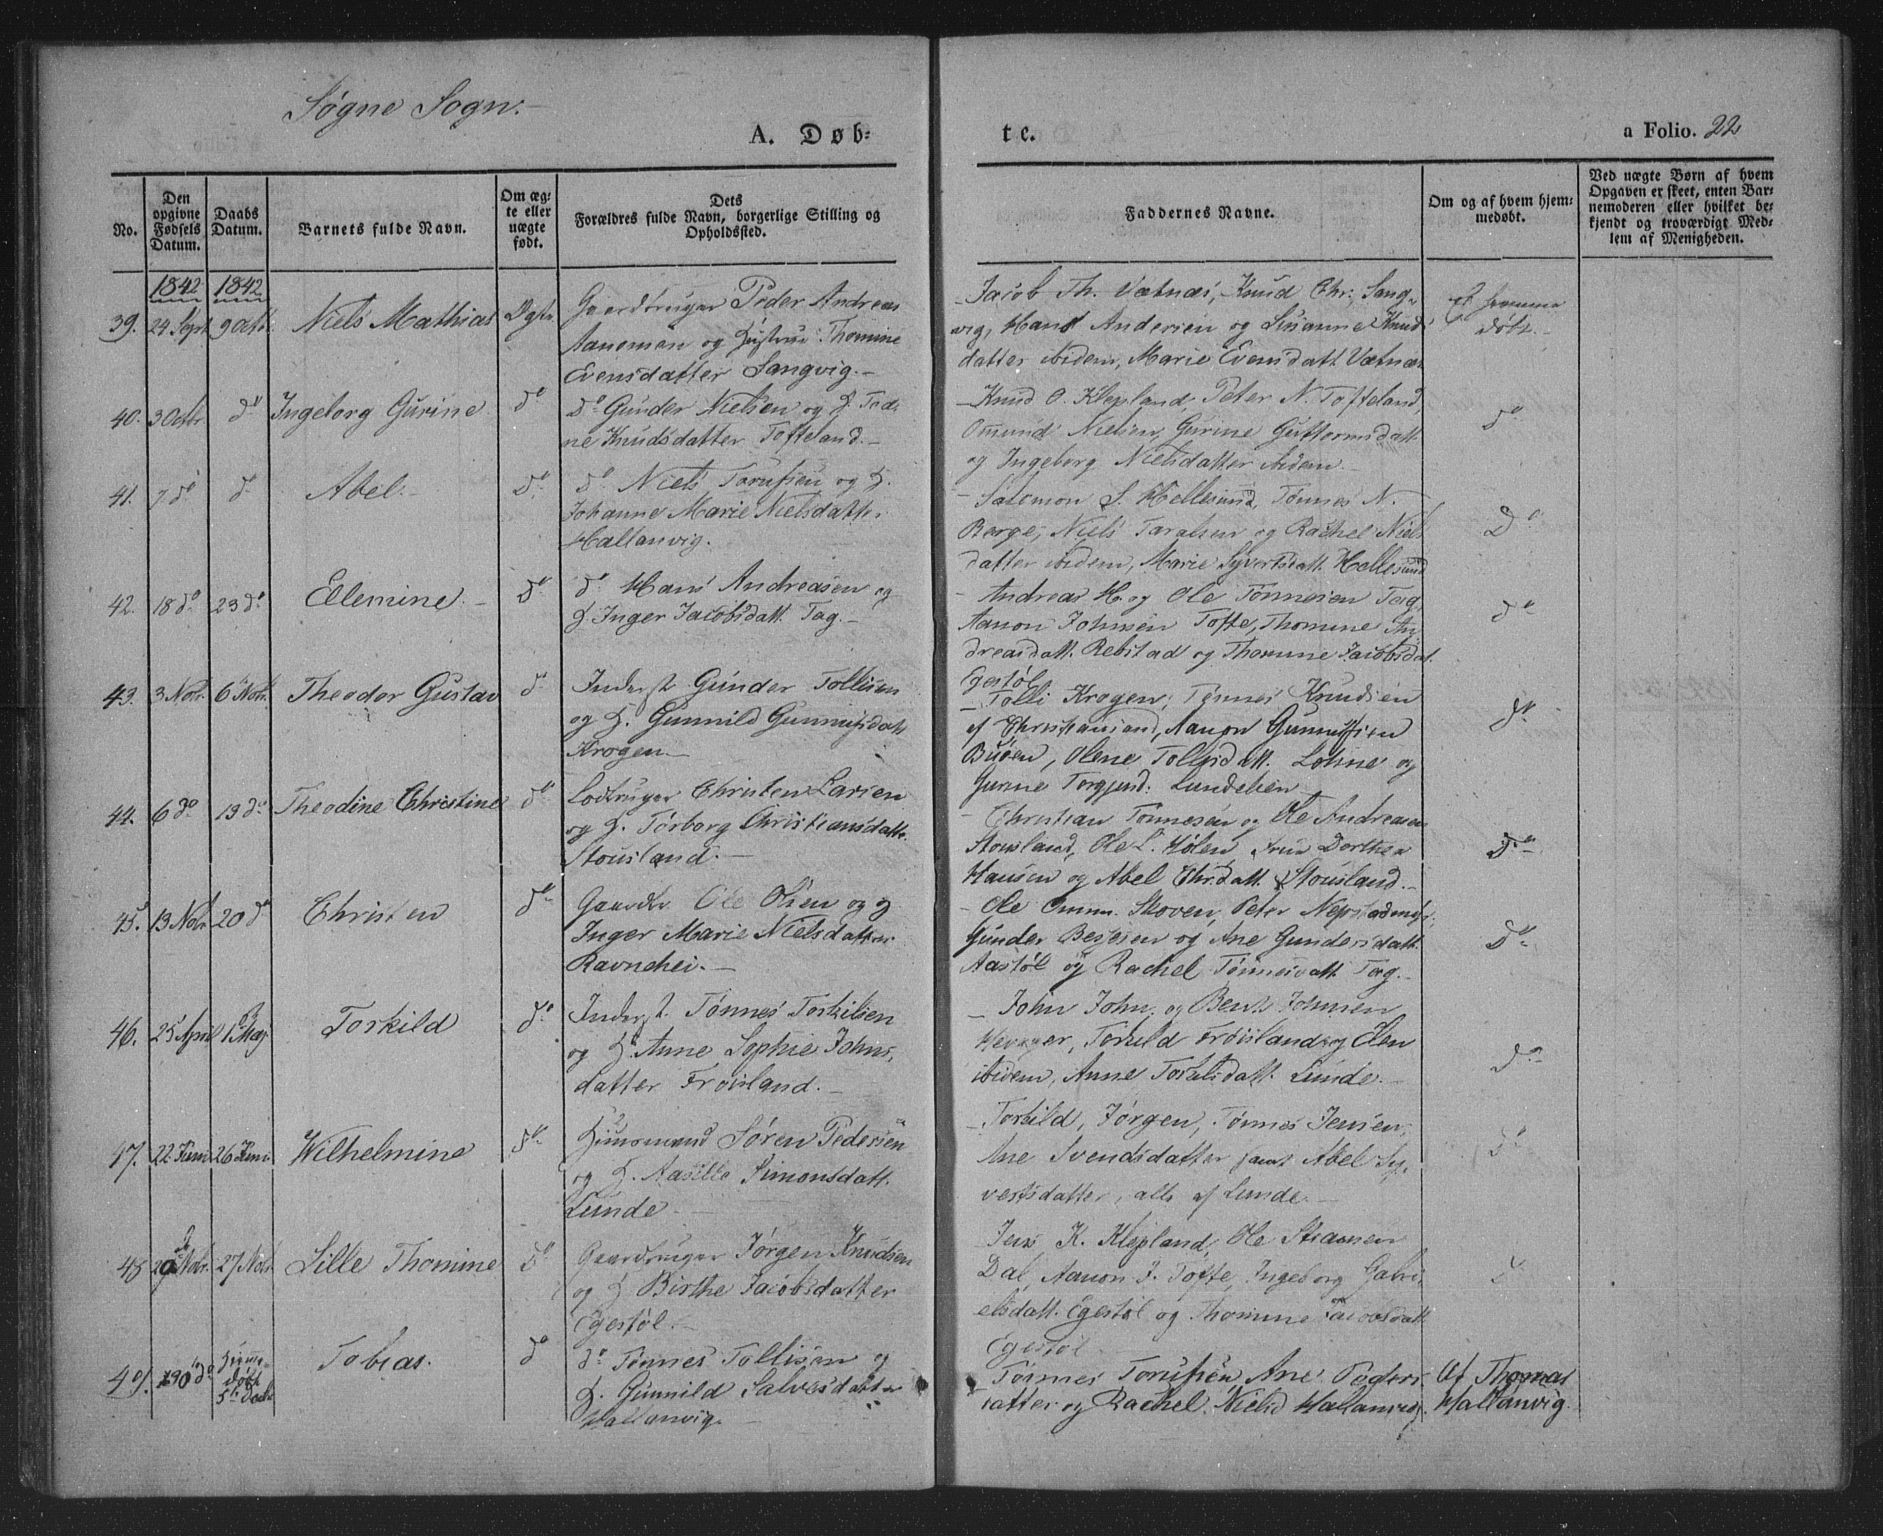 Søgne Sogn.
A. Døb-
te.
a Folio. 22
No.
Den opgivne Fødsels Datum.
Daabs Datum.
Barnets fulde Navn.
Om ægte eller uægte født.
Dets Forældres fulde Navn, borgerlige Stilling og Opholdssted.
Faddernes Navne.
Om og af hvem hjemmedøbt.
Ved uægte Børn af hvem Opgaven er skeet, enten Barnemoderen eller hvilket bekjendt og troværdigt Medlem af Menigheden.
1842 1842
39. 24 Sept 9 Octr. Niels Mathias Ægte Gaardbruger Peder Andreas
Aanonsen og Hustrue Thomine
Evensdatter Langvig.
Jacob Th. Vætnæs, Knud Chr. Lang-
vig, Hans Andersen og Susanne Knuds
datter ibidem, Marie Evensdatt. Vætnæs
Ei hjemme
døbt.
40. 3 Octbr do Ingeborg Gurine do do Gunder Nielsen og H. Tod-
ne Knudsdatter Tofteland.
Knud O. Klepland, Peter N. Tofteland,
Omund Nielsen, Gurine Guttormsdatt.
og Ingeborg Nielsdatter ibidem.
do
41. 7 do do Abel. do do Niels Torufsen og H.
Johanne Marie Nielsdatter
Hallanvig.
Salomon S. Hellesund, Tønnes N.
Berge, Niels Taralsen og Rachel Niels
datter ibidem, Marie Syvertsdatt. Hellesund
Do
42. 18 do 23 do Elemine. do do Hans Andreasen og
H. Inger Jacobsdatt. Tag.
Andreas H. og Ole Tønnesen Tag,
Aanon Johnsen Tofte, Thomine An-
dreasdatt. Rebstad og Thomine Jacobsdat.
Egestøl
do
43. 3 Nobr. 6 Nobr. Theodor Gustav do Inderst Gunder Tollisen
og H. Gunnild Gunnufsdatt.
Krogen.
Tolli Krogen, Tønnes Knudsen
af Christiansand, Aanon Gunnufsen
Buøen, Olene Tollisdatt. Lohne og
Gurine Torgjusd. Lundelien
do
44. 6 do 13 do Theodine Christine do Lodbruger Christen Larsen
og H. Torborg Christiansdatt.
Stousland.
Christian Tønnesen og Ole Andreasen
Stousland, Ole L. Hølen, Frue Dorthea
Hansen og Abel Chr.datt. Stousland.
Do
45. 13 Nobr 20 do Christen do Gaardbr. Ole Olsen og H.
Inger Marie Nielsdatter
Ravnehei.
Ole Omm. Skoven, Peter
Gunder Besesen og Ane Gundersdatt.
Aastøl og Rachel Tønnesdatt. Tag.
Do
46. 25 April 1 Maj Torkild do Inderst. Tønnes Torkilsen
og H. Anne Sophie Johns-
datter Frøisland.
John John. og Bent Johnsen
Hevager, Torkild Frøisland og Olen
ibidem, Anne Toralsdatt. Lunde.
do
47. 22 Juni 26 Juni Wilhelmine do Huusmand Søren Pedersen
og H. Aasille Simonsdatt.
Lunde
Torkild, Jørgen, Tønnes Jensen,
Ane Svendsdatter samt Abel Sy-
vertsdatter, alle af Lunde.
do
48 20 Nobr. 27 Nobr. Lille Thomine do Gaardbruger Jørgen Knudsen
og H. Birthe Jacobsdatter
Egestøl.
Jens K. Klepland, Ole
Dal, Aanon J. Tofte, Ingeborg Gabri-
elsdatt. Egestøl og Thomine Jacobsdatt.
Egestøl
49. do Hjemme-
døbt
5te Decbr Tobias. do do Tønnes Tollisen og
H. Gunnild Salvesdatter
Hallanvig
Tønnes Torufsen, Ane Peders-
datter og Rachel Nielsd Hallanvig
Af Thomas
Hallanvig.